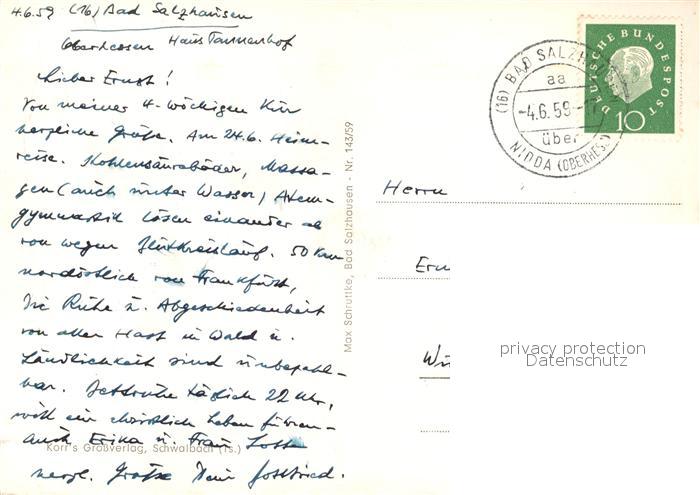 4.6.59 (16) Bad Salzhausen
Oberhessen Haus Tannenhof
Lieber Ernst!
Von meiner 4-wöchigen Kur
herzliche Grüße. Am 24.6. Heim-
reise. Kohlensäurebäder, Massa-
gen (auch unter Wasser) Atem-
gymnastik lösen einander ab
von wegen Blutkreislauf. 50 km
nordöstlich von Frankfurt,
Die Ruhe u. Abgeschiedenheit
von aller Hast in Wald u.
Ländlichkeit sind unbezahl-
bar. Bettruhe täglich 22 Uhr,
will ein christlich Leben führen-
auch Erika u. Frau Lotte
herzl. Grüße Dein Gottfried.
Korr's Großverlag, Schwalbach (Ts.)
Max Schruttke, Bad Salzhausen - Nr. 143/59
DEUTSCHE BUNDESPOST
10
(16) BAD SALZH
aa
-4.6.59-
über
NIDDA (OBERHES
Herrn
privacy protection
Datenschutz